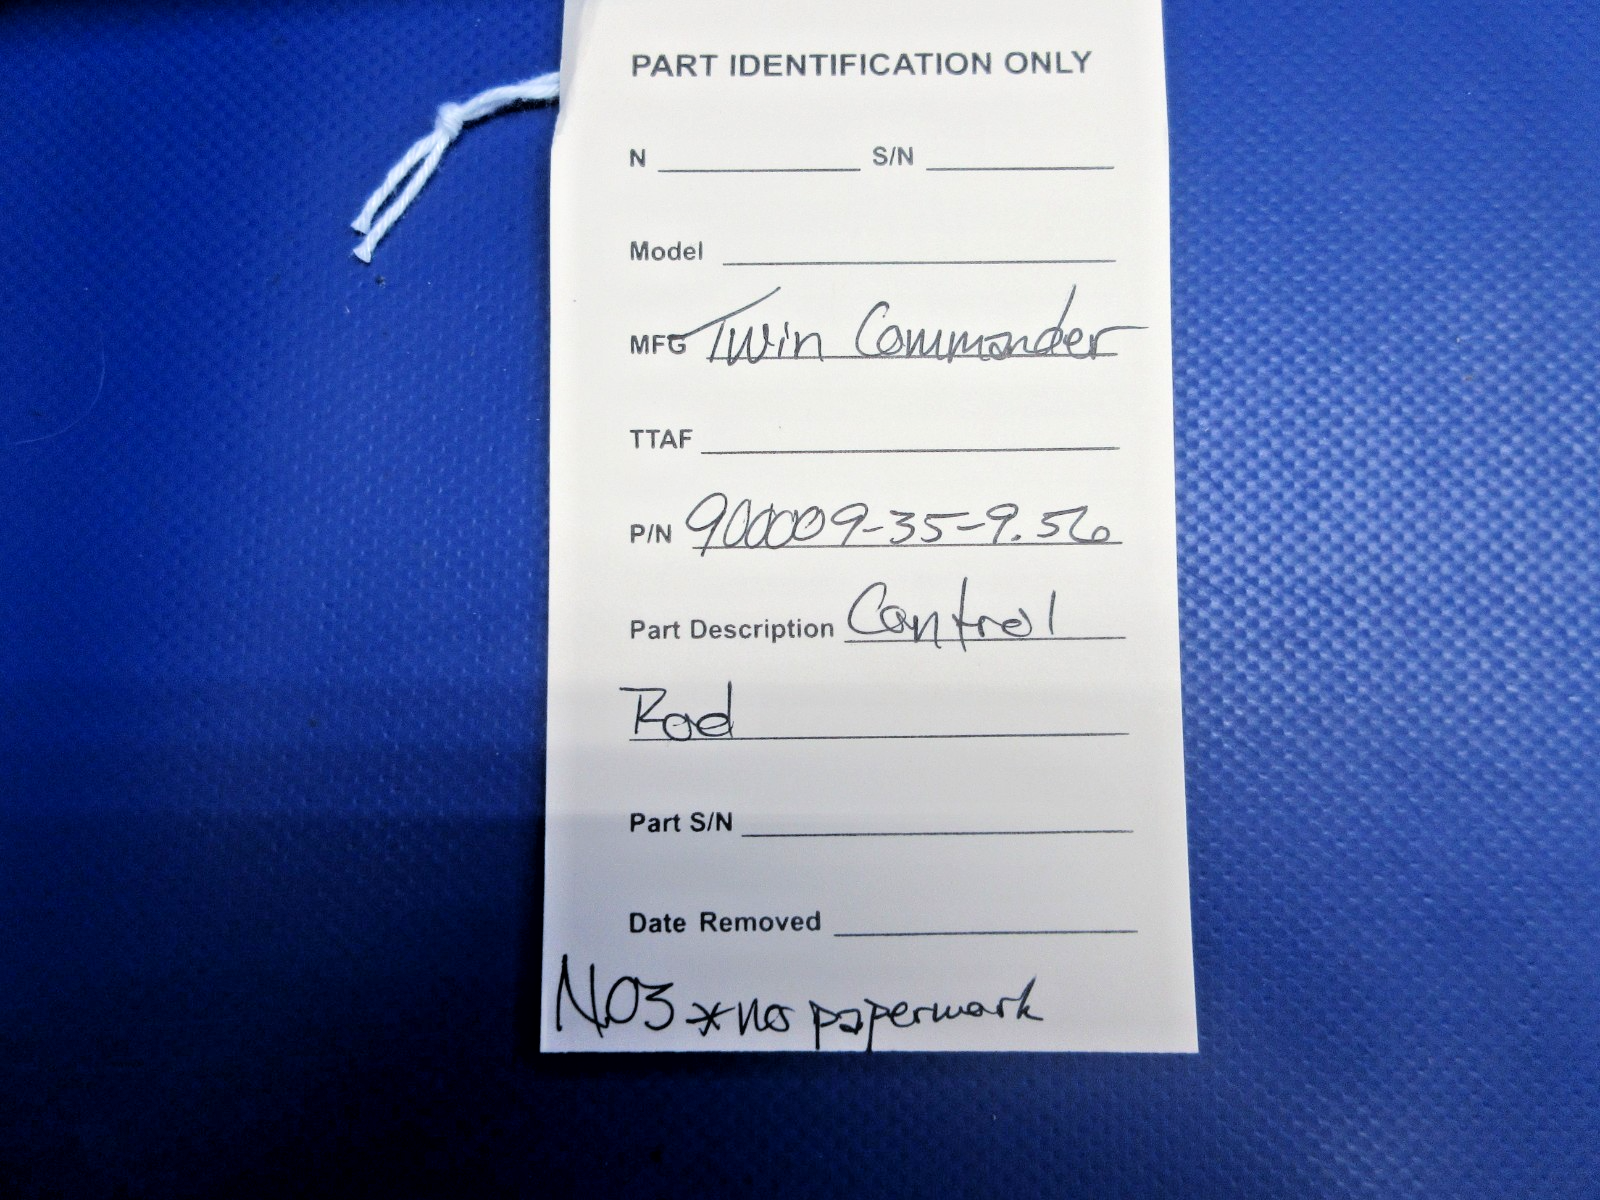 PART IDENTIFICATION ONLY
N S/N
Model
MFG Twin Commander
TTAF
P/N 900009-35-9.56
Part Description Control
Rod
Part S/N
Date Removed
NOS *no paperwork